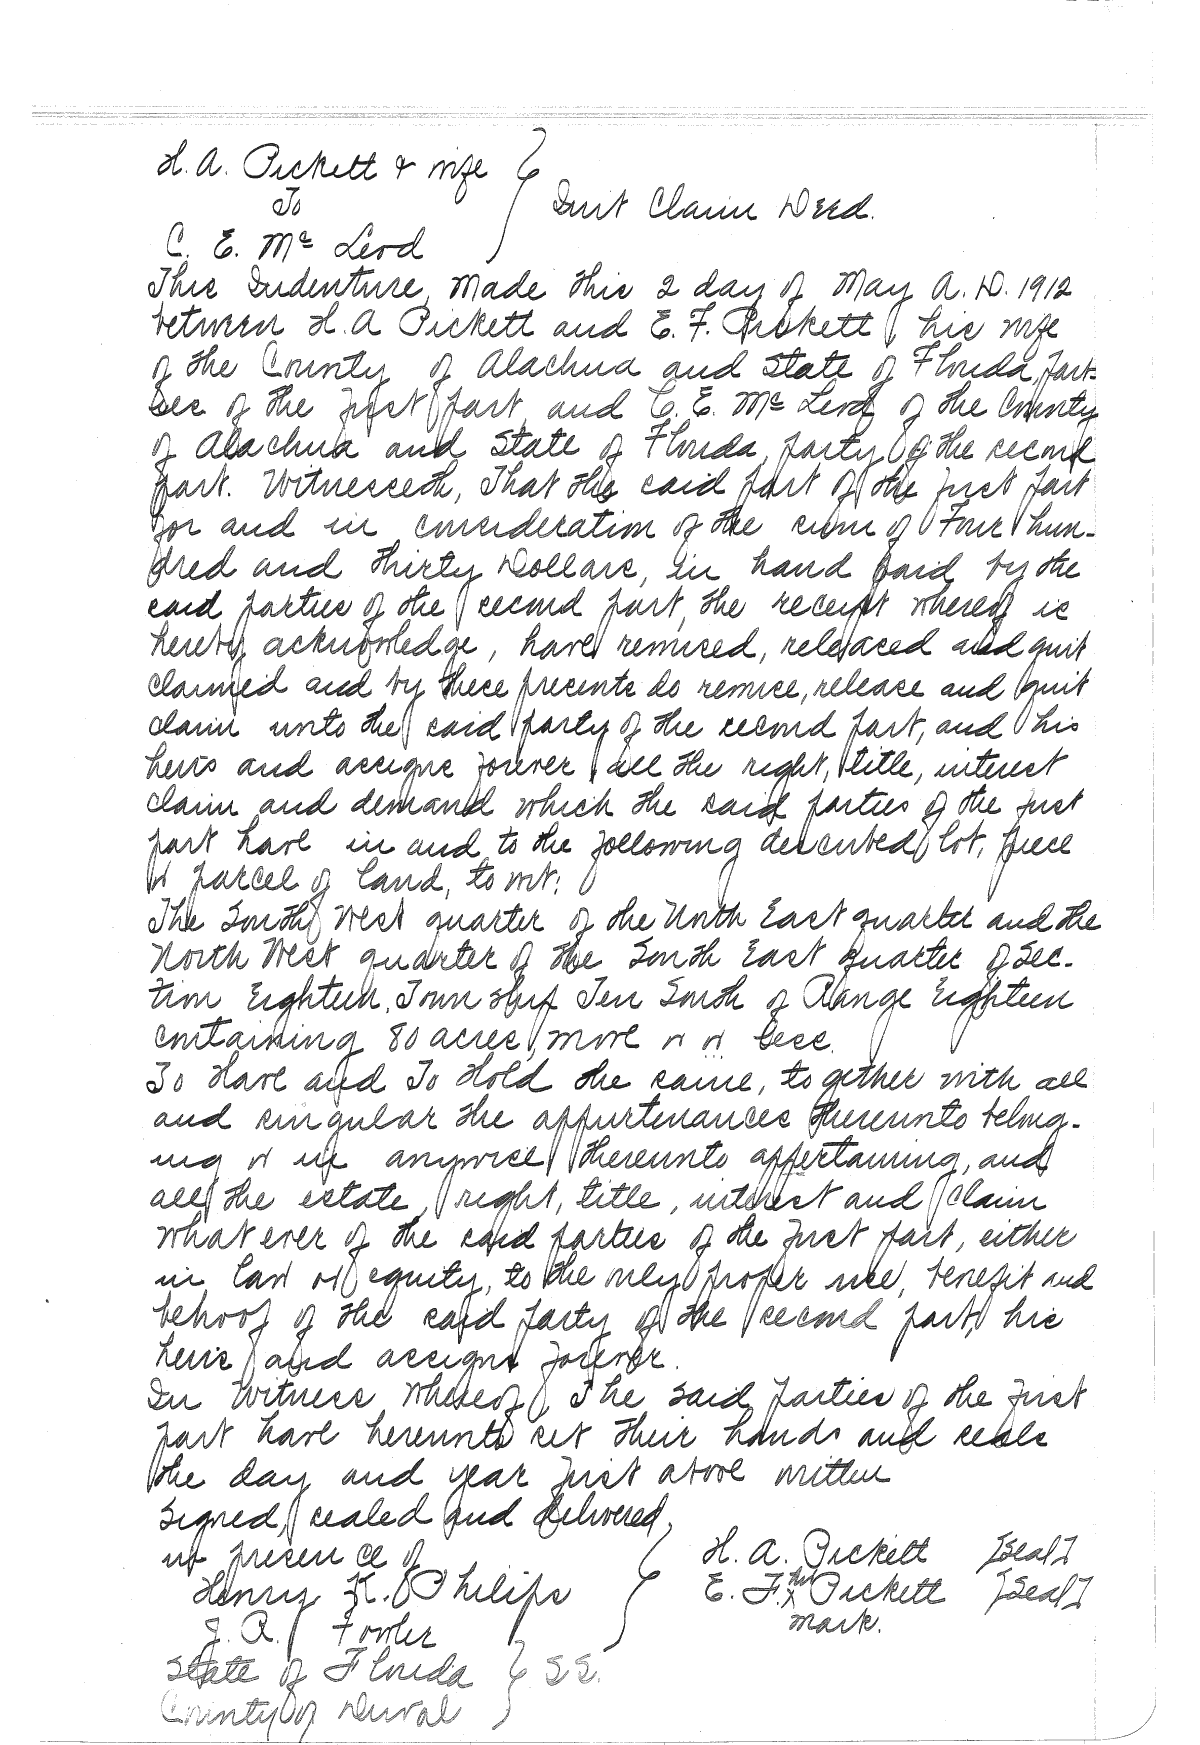 H. A. Pickett & wife
To
Quit Claim Deed.
C. E. Mc Leod
This Indenture, Made this 2 day of May A. D. 1912
between H. A Pickett and E. F. Pickett, his wife
of the County of Alachua and State of Florida, part-
ies of the first part, and C. E. Mc Leod of the County
of Alachua and State of Florida, party of the second
part. Witnesseth, That the said part of the first part
for and in consideration of the sum of Four hun-
dred and thirty Dollars, in hand paid by the
said parties of the second part, the receipt whereof is
hereby acknowledge, have remised, released and quit
claimed and by these presents do remise, release and quit
claim unto the said party of the second part, and his
heirs and assigns forever all the right, title, interest
claim and demand which the said parties of the first
part have in and to the following described lot, piece
or parcel of land, to wit:
The South West quarter of the North East quarter and the
North West quarter of the South East quarter of Sec-
tion Eighteen, Town ship Ten South of Range Eighteen
containing 80 acres, more or or less.
To Have and To Hold the same, together with all
and singular the appurtenances thereunto belong-
ing or in anywise thereunto appertaining, and
all the estate, right, title, interest and claim
what ever of the said parties of the first part, either
in law or equity, to the only proper use, benefit and
behoof of the said party of the second part, his
heirs and assigns forever.
In Witness Whereof, The said parties of the first
part have hereunto set their hands and seals
the day and year first above written
Signed, sealed and delivered,
in presence of
H. A. Pickett [Seal]
Henry K. Philips
E. F. her x Pickett [Seal]
mark.
J. R. Fowler
State of Florida } S S.
County of Duval